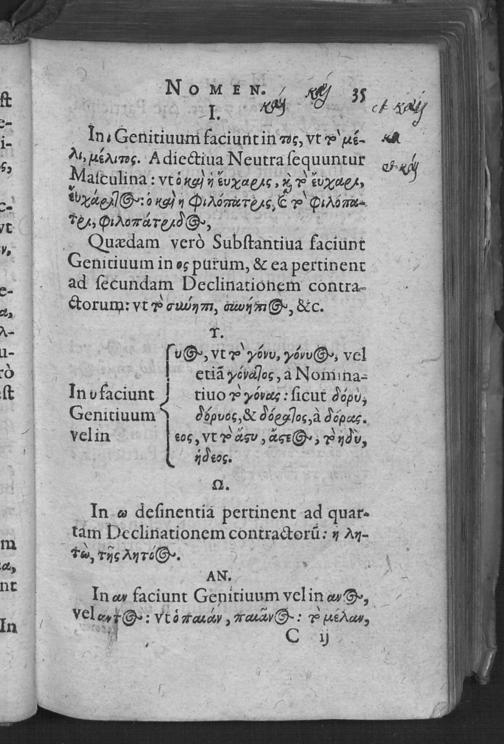 NOMEN. 35
I.
In ι Genitiuum faciunt in τος, vt τὸ μέ-
λι, μέλιτος. Adiectiua Neutra sequuntur
Masculina: vt ὁ καὶ ἡ εὔχαρις, κ̀ τὸ εὔχαρι,
εὐχάριτος: ὁ καὶ ἡ φιλόπατρις, κ̀ τὸ φιλόπα-
τρι, φιλοπάτριδος,
Quædam verò Substantiua faciunt
Genitiuum in ος purum, & ea pertinent
ad secundam Declinationem contra-
ctorum: vt τὸ σινήπι, σινήπιος, &c.
Υ.
υος, vt τὸ γόνυ, γόνυος, vel
etiã γόνατος, à Nomina-
tiuo τὸ γόνας: sicut δόρυ,
δόρυος, & δόρατος, à δόρας.
In υ faciunt
Genitiuum
vel in
εος, vt τὸ ἄστυ, ἄστεος, τὸ ἡδὺ,
ἡδεος.
Ω.
In ω desinentia pertinent ad quar-
tam Declinationem contractorũ: ἡ λη-
τὼ, τῆς λητόος.
ΑΝ.
In αν faciunt Genitiuum vel in ανος,
vel αντος: vt ὁ παιάν, παιᾶνος: τὸ μέλαν,
C ij
καὶ
καὶ
et καὶ
κα
καὶ
ft
e-
i-
ς,
c-
vt
ν,
e-
α,
λ-
u-
rò
est
m
α,
nt
In